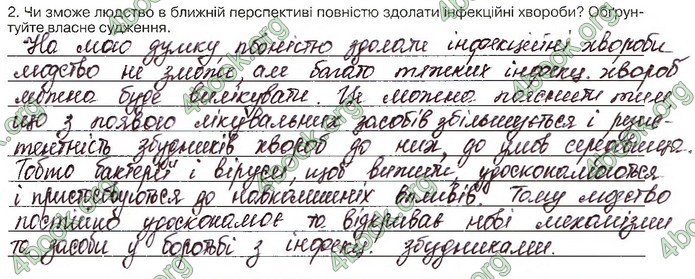 2. Чи зможе людство в ближній перспективі повністю здолати інфекційні хвороби? Обґрун-
туйте власне судження.
На мою думку, повністю здолати інфекційні хвороби
людство не зможе, але багато тяжких інфекц. хвороб
можна буде вилікувати. Це можна пояснити тим,
що з появою лікувальних засобів збільшується і резис-
тентність збудників хвороб до них, до умов середовища.
Тобто бактерії і віруси, щоб вижити, удосконалюються
і пристосовуються до навколишніх впливів. Тому людство
постійно удосконалює та відкриває нові механізми
та засоби у боротьбі з інфекц. збудниками.